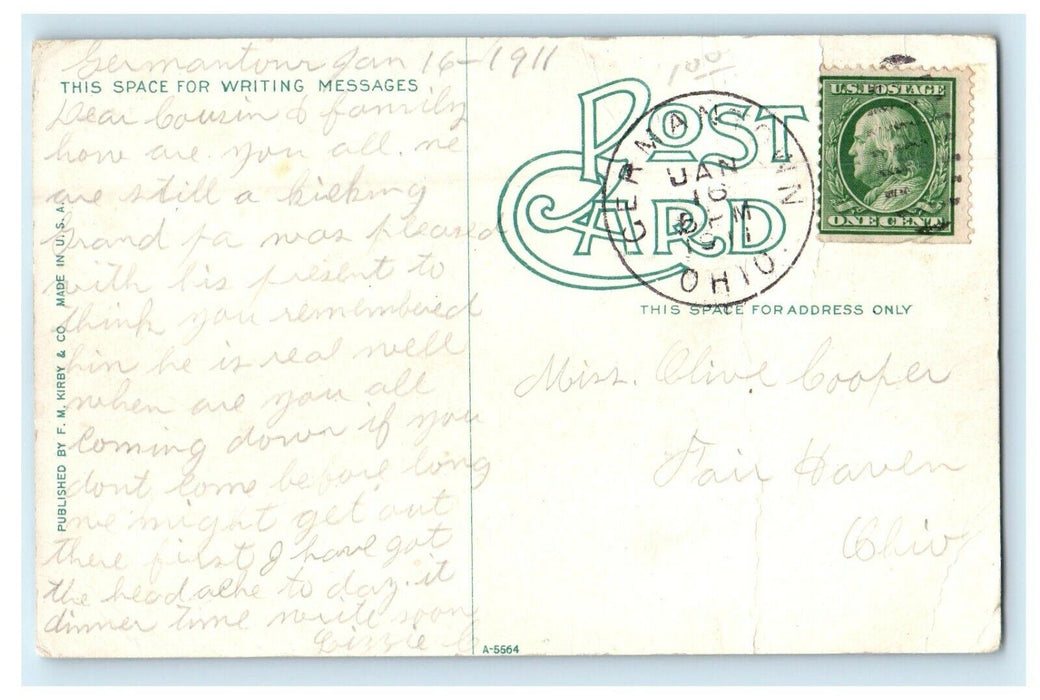 Germantown Jan 16-1911
THIS SPACE FOR WRITING MESSAGES
Dear Cousin & family
how are you all. we
are still a kicking
Grand pa was pleased
with his present to
think you remembered
him he is real well
when are you all
coming down if you
dont come before long
we might get out
there first I have got
the headache to day. it
dinner time write soon
Lizzie C
PUBLISHED BY F. M. KIRBY & CO. MADE IN U. S. A.
A-5564
100
POST CARD
GERMANTOWN
JAN
OHIO.
U.S. POSTAGE
ONE CENT
THIS SPACE FOR ADDRESS ONLY
Miss. Olive Cooper
Fair Haven
Ohio